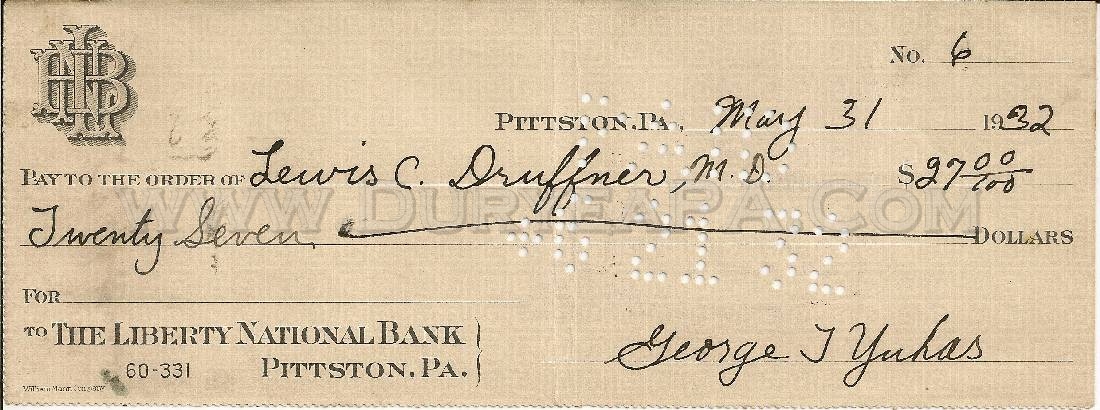 LNB
No. 6
PITTSTON, PA., May 31 1932
PAY TO THE ORDER OF Lewis C. Druffner, M.D. $27 00/100
WWW.DURYEAPA.COM
Twenty Seven DOLLARS
FOR
TO THE LIBERTY NATIONAL BANK
60-331 PITTSTON, PA.
George J Yuhas